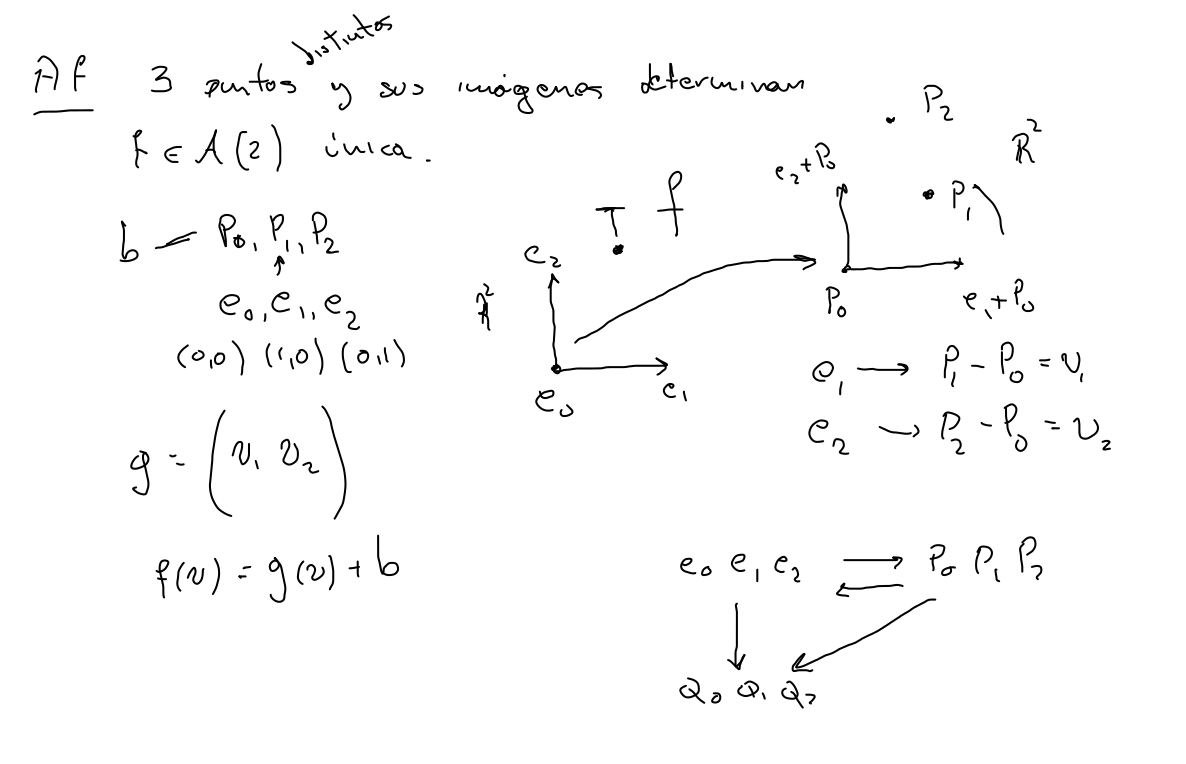 Af 3 puntos distintos y sus imágenes determinan
f ∈ A(2) única.
b — P₀, P₁, P₂
↑
e₀, e₁, e₂
(0,0) (1,0) (0,1)
g = (v₁ v₂)
f(v) = g(v) + b
T f
R²
e₂
e₀
e₁
P₂
R²
e₂+P₀
P₁
P₀
e₁+P₀
e₁ → P₁ - P₀ = v₁
e₂ → P₂ - P₀ = v₂
e₀ e₁ e₂ → P₀ P₁ P₂
←
Q₀ Q₁ Q₂